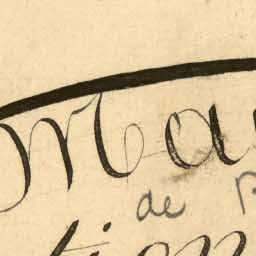 Ma
de
tion